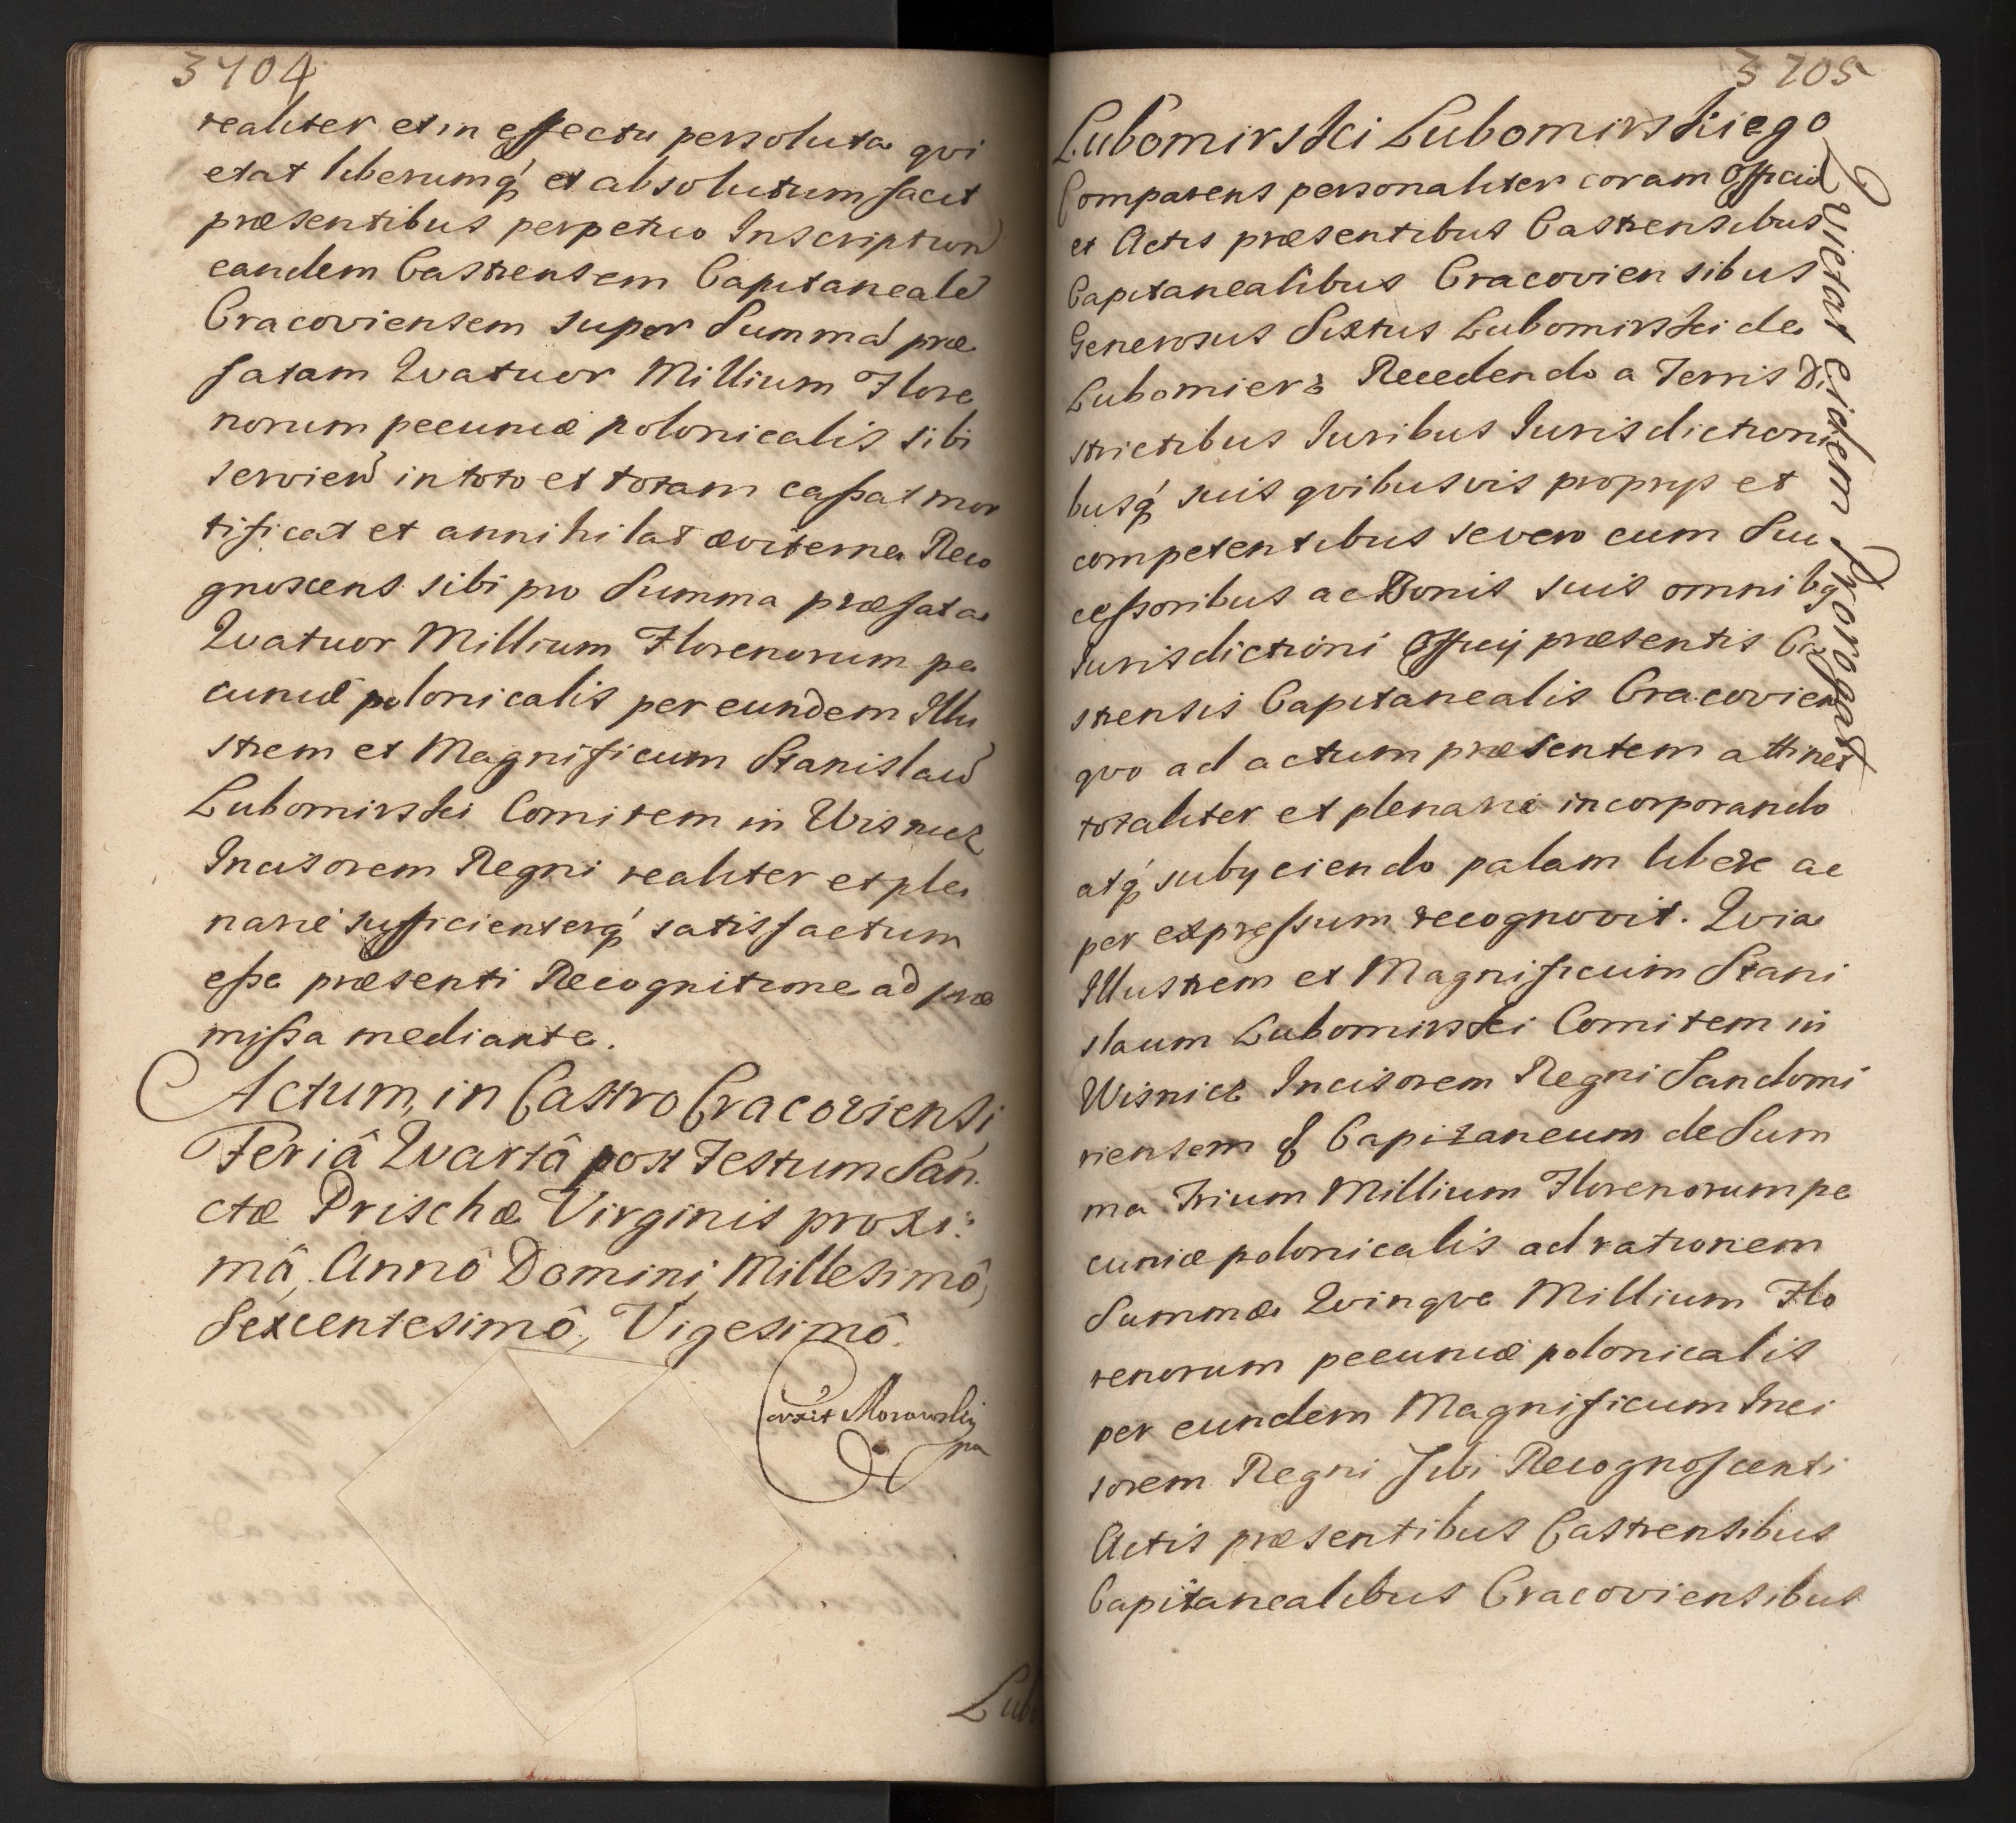 3704
realiter et in effectu persoluta qvi
etat liberumq́ et absolutum facit
præsentibus perpetuo Inscription
eandem Castrensem Capitaneale
Cracoviensem super Summa præ
fatam Qvatuor Millium Flore
norum pecuniæ polonicalis sibi
servien in toto et totam caßat mor
tificat et annihilat æviterne Reco
gnoscens sibi pro Summa præfata
Qvatuor Millium Florenorum pe
cuniæ polonicalis per eundem Illu
strem et Magnificum Stanislaw
Lubomirski Comitem in Wisnicz
Incisorem Regni realiter et ple
narie sufficienterq́ satisfactum
eße præsenti Recognitione ad præ
mißa mediante.
Actum, in Castro Cracoviensi
Feriâ Qvartâ post Festum San
ctæ Prischæ Virginis proxi:
mâ, Annô Domini, Millesimô,
Sexcentesimô, Vigesimô.
Corrxit Morawsky
pa
Lub
3705
Lubomirski Lubomirskiego
Comparens personaliter coram Officio
et Actis præsentibus Castrensibus
Capitanealibus Cracoviensibus
Generosus Sixtus Lubomirski de
Lubomierz Recedendo a Terris Di
strictibus Iuribus Iurisdictioni
busq́ suis qvibusvis proprys et
competentibus se vero cum Suc
ceßoribus ac Bonis suis omnibq
Iurisdictioni Officij præsentis Ca
strensis Capitanealis Cracovien
qvo ad actum præsentem attinet
totaliter et plenarie incorporando
atq́ subyciendo palam libere ac
per expreßum recognovit. Qvia
Illustrem et Magnificum Stani
slaum Lubomirski Comitem in
Wisnicz Incisorem Regni Sandomi
riensem & Capitaneum de Sum
ma Trium Millium Florenorum pe
cuniæ polonicalis ad rationem
Summæ Qvinqve Millium Flo
renorum pecuniæ polonicalis
per eundem Magnificum Inci
sorem Regni Sibi Recognoscenti
Actis præsentibus Castrensibus
Capitanealibus Cracoviensibus
Qvietat eidem Prorogat